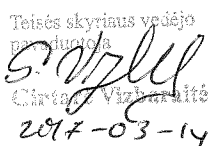 Teisės skyriaus vedėjo
pavaduotoja
Gintarė Vizbaraitė
2017-03-14